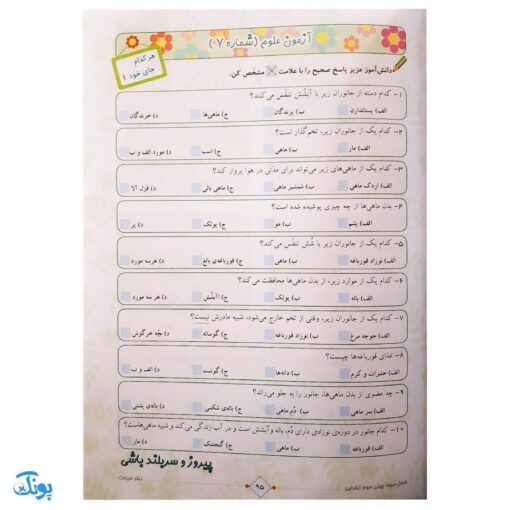 آزمون علوم (شماره ۷۰)
هر کدام
جای خود ۱
دانش‌آموز عزیز پاسخ صحیح را با علامت ☒ مشخّص کن.
۱- کدام دسته از جانوران زیر با آبشُش تنفّس می‌کنند؟
الف) پستانداران ب) پرندگان ج) ماهی‌ها د) خزندگان
۲- کدام یک از جانوران زیر، تخم‌گذار است؟
الف) مار ب) ماهی ج) اسب د) مورد الف و ب
۳- کدام یک از ماهی‌های زیر می‌تواند برای مدّتی در هوا پرواز کند؟
الف) اردک ماهی ب) شمشیر ماهی ج) ماهی بالی د) قزل آلا
۴- بدن ماهی‌ها از چه چیزی پوشیده شده است؟
الف) پشم ب) مو ج) پولک د) پر
۵- کدام یک از جانوران زیر با شُش تنفّس می‌کند؟
الف) نوزاد قورباغه ب) ماهی ج) قورباغه‌ی بالغ د) هر سه مورد
۶- کدام یک از موارد زیر، از بدن ماهی‌ها محافظت می‌کند؟
الف) باله ب) پولک ج) آبشُش د) هر سه مورد
۷- کدام یک از جانوران زیر، وقتی از تخم خارج می‌شود، شبیه مادرش نیست؟
الف) جوجه مرغ ب) نوزاد قورباغه ج) گوساله د) بچّه خرگوش
۸- غذای قورباغه‌ها چیست؟
الف) حشرات و کرم ب) دانه‌ها ج) گوشت د) الف و ب
۹- چه عضوی از بدن ماهی‌ها، جانور را به جلو می‌راند؟
الف) سر ماهی ب) دُم ماهی ج) باله‌ی شکمی د) باله‌ی پشتی
۱۰- کدام جانور در دوره‌ی نوزادی دارای دُم، باله و آبشش است و در آب زندگی می‌کند و شبیه ماهی‌هاست؟
الف) قورباغه ب) ماهی ج) گنجشک د) مار
پیروز و سربلند باشی
۹۵
پونک